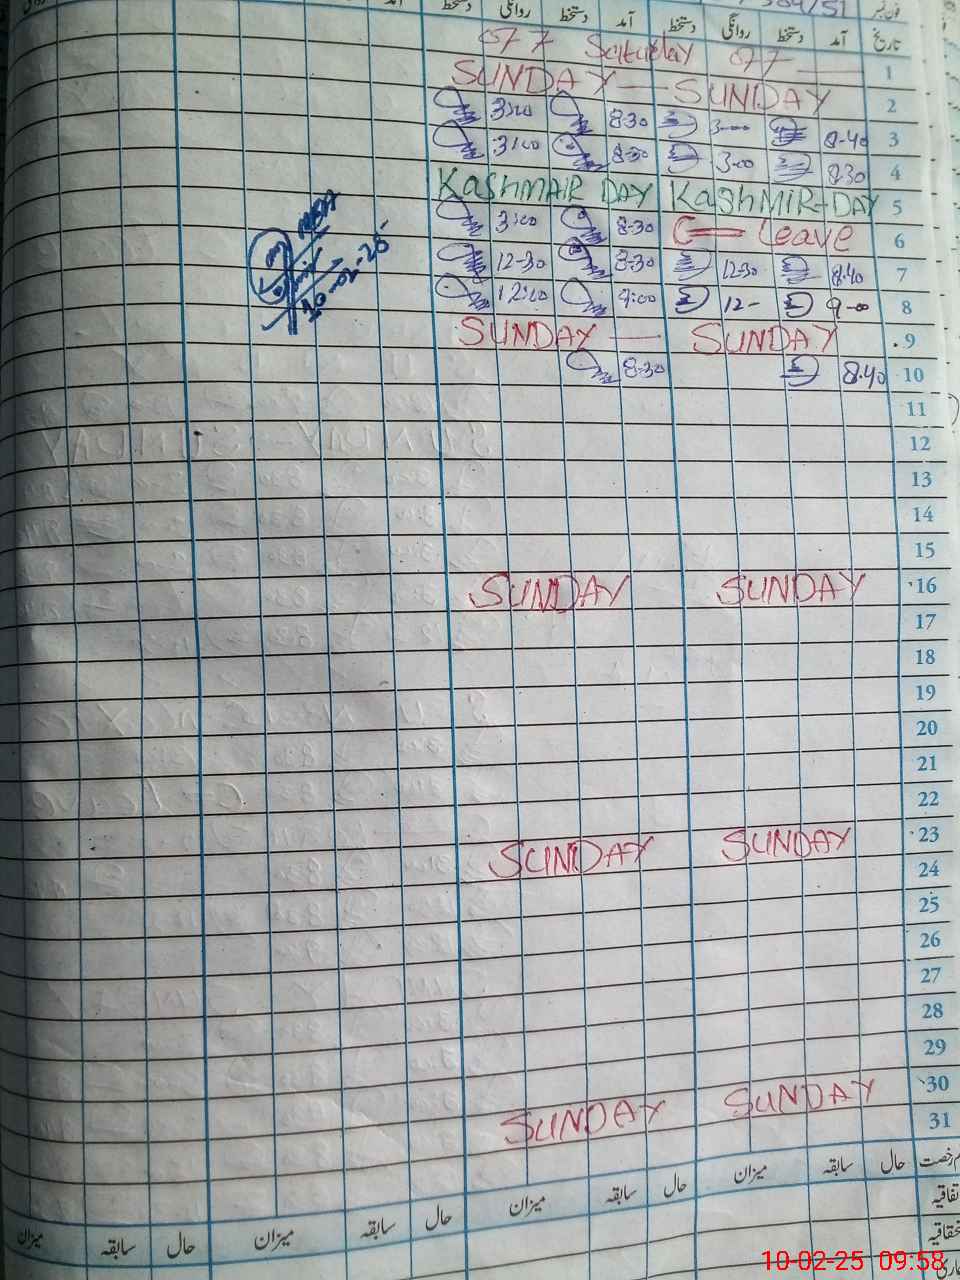 فون نمبر
تاریخ آمد دستخط روانگی دستخط آمد دستخط روانگی دستخط
OFF Saturday OFF 1
SUNDAY — SUNDAY 2
3:00 8-30 3-00 8-40 3
3:00 8-30 3-00 8-30 4
KASHMAIR DAY KASHMIR-DAY 5
3:00 8-30 C Leave 6
12-30 8-30 12-30 8-40 7
12:00 9:00 12- 9-00 8
SUNDAY — SUNDAY 9
8-30 8-40 10
10-02-25
11
12
13
14
15
SUNDAY SUNDAY 16
17
18
19
20
21
22
SUNDAY SUNDAY 23
24
25
26
27
28
29
SUNDAY SUNDAY 30
31
رخصت حال سابقہ میزان حال سابقہ میزان حال سابقہ میزان حال سابقہ میزان
10-02-25 09:58